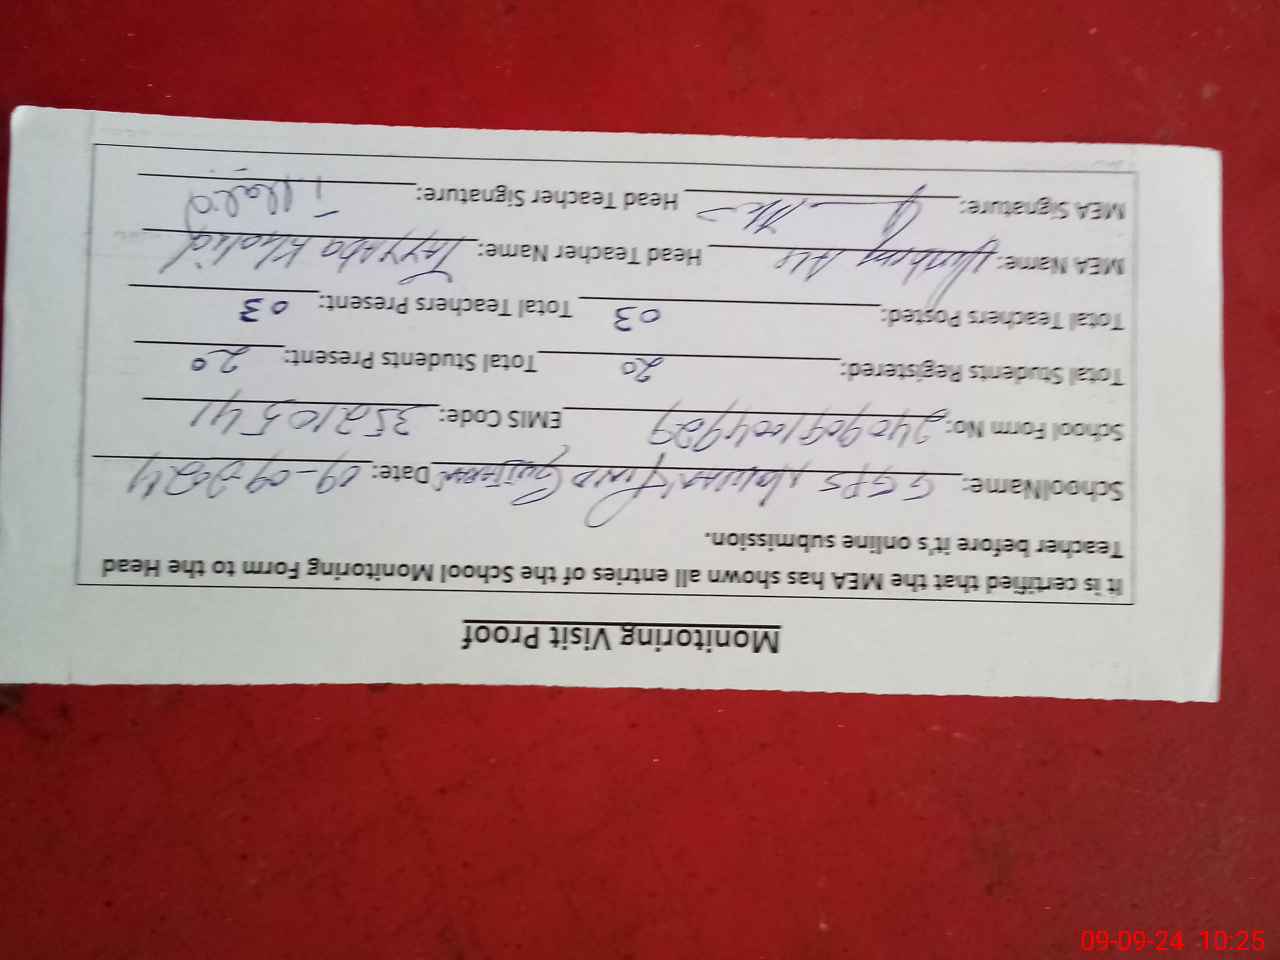 Monitoring Visit Proof
It is certified that the MEA has shown all entries of the School Monitoring Form to the Head
Teacher before it's online submission.
SchoolName: GGPS PIND Date: 09-09-2024
School Form No: 2409091004929 EMIS Code: 35210541
Total Students Registered: 20 Total Students Present: 20
Total Teachers Posted: 03 Total Teachers Present: 03
MEA Name: Ali Head Teacher Name: Tayyaba Khalid
MEA Signature: Head Teacher Signature: T. Khalid
09-09-24 10:25